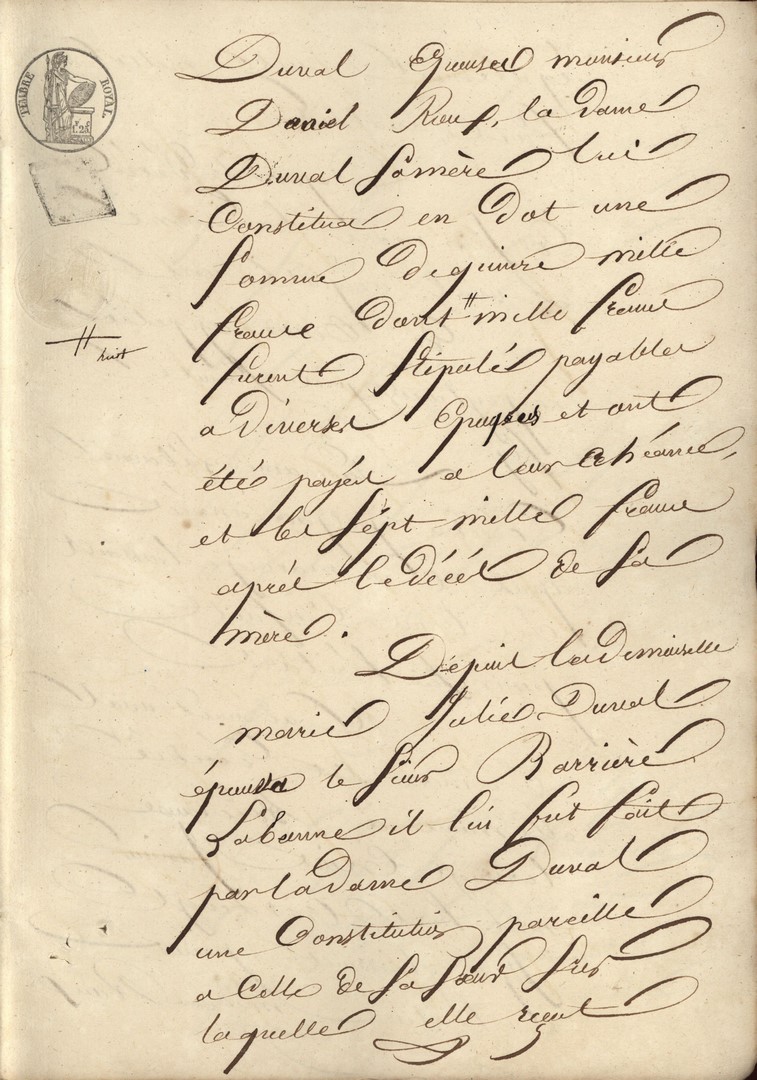 TIMBRE ROYAL
1.25
Duval épousa monsieur
Daniel Rouf, la dame
Duval sa mère lui
Constitua en dot une
somme de quinze mille
francs dont # mille francs
# huit
furent stipulés payables
a diverses époques et ont
été payés a leur échéance,
et les sept mille francs
après le décès de sa
mère.
Depuis la demoiselle
marie Julie Duval
épousa le sieur Barrière
Labenne il lui fut fait
par la dame Duval
une Constitution pareille
a Celle de sa sœur sur
laquelle elle reçut